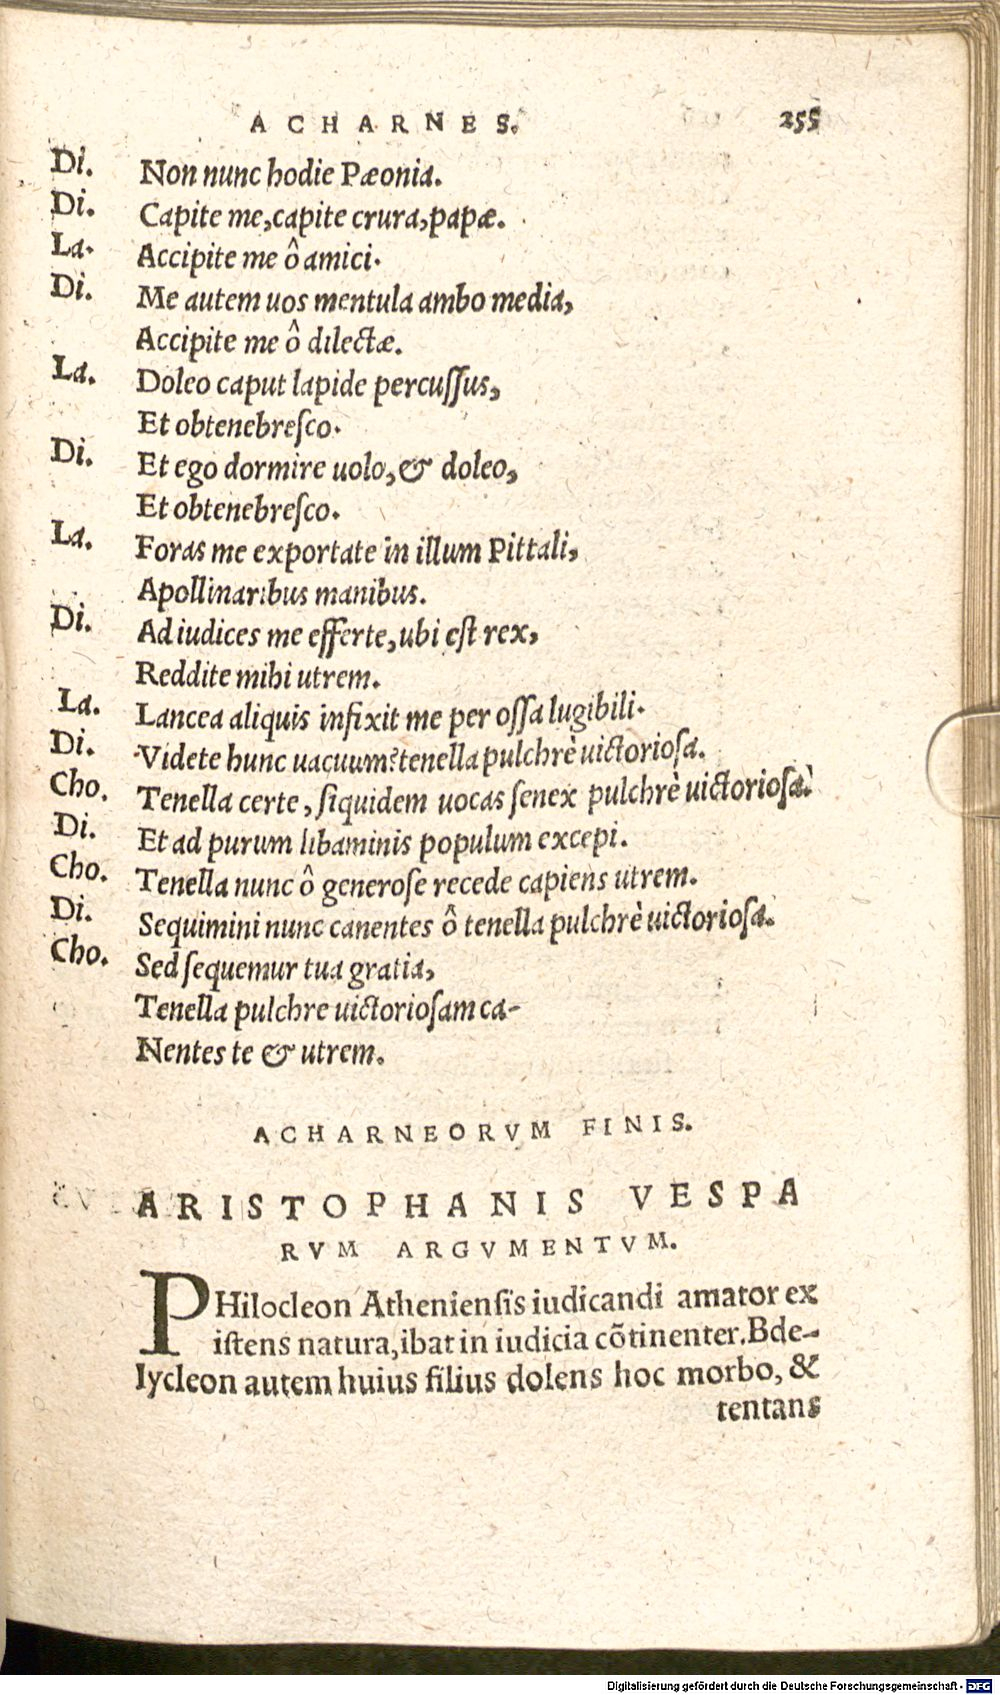 ACHARNES. 255
Di. Non nunc hodie Pæonia.
Di. Capite me, capite crura, papæ.
La. Accipite me ô amici.
Di. Me autem uos mentula ambo media,
Accipite me ô dilectæ.
La. Doleo caput lapide percuſſus,
Et obtenebreſco.
Di. Et ego dormire uolo, & doleo,
Et obtenebreſco.
La. Foras me exportate in illum Pittali,
Apollinaribus manibus.
Di. Ad iudices me efferte, ubi eſt rex,
Reddite mihi utrem.
La. Lancea aliquis infixit me per oſſa lugibili.
Di. Videte hunc uacuum? tenella pulchrè uictorioſa.
Cho. Tenella certe, ſiquidem uocas ſenex pulchrè uictorioſa.
Di. Et ad purum libaminis populum excepi.
Cho. Tenella nunc ô generoſe recede capiens utrem.
Di. Sequimini nunc canentes ô tenella pulchrè uictorioſa.
Cho. Sed ſequemur tua gratia,
Tenella pulchre uictorioſam ca-
Nentes te & utrem.
ACHARNEORVM FINIS.
ARISTOPHANIS VESPA
RVM ARGVMENTVM.
PHilocleon Athenienſis iudicandi amator ex
iſtens natura, ibat in iudicia cõtinenter. Bde-
lycleon autem huius filius dolens hoc morbo, &
tentans
Digitalisierung gefördert durch die Deutsche Forschungsgemeinschaft - DFG